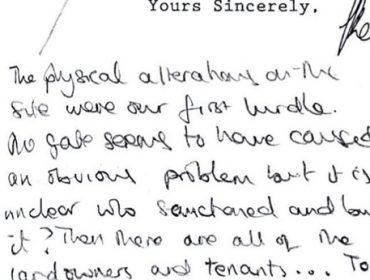 Yours Sincerely,
The physical alterations on the
site were our first hurdle.
No gate seems to have caused
an obvious problem but it is
unclear who sanctioned and
it? Then there are all of the
landowners and tenants... To